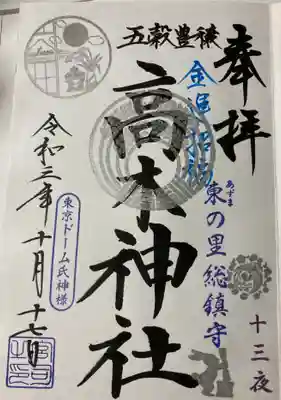 奉拝
五穀豊穣
金運招福
東の里総鎮守
あずま
高木神社
十三夜
東京ドーム氏神様
令和三年十月十七日